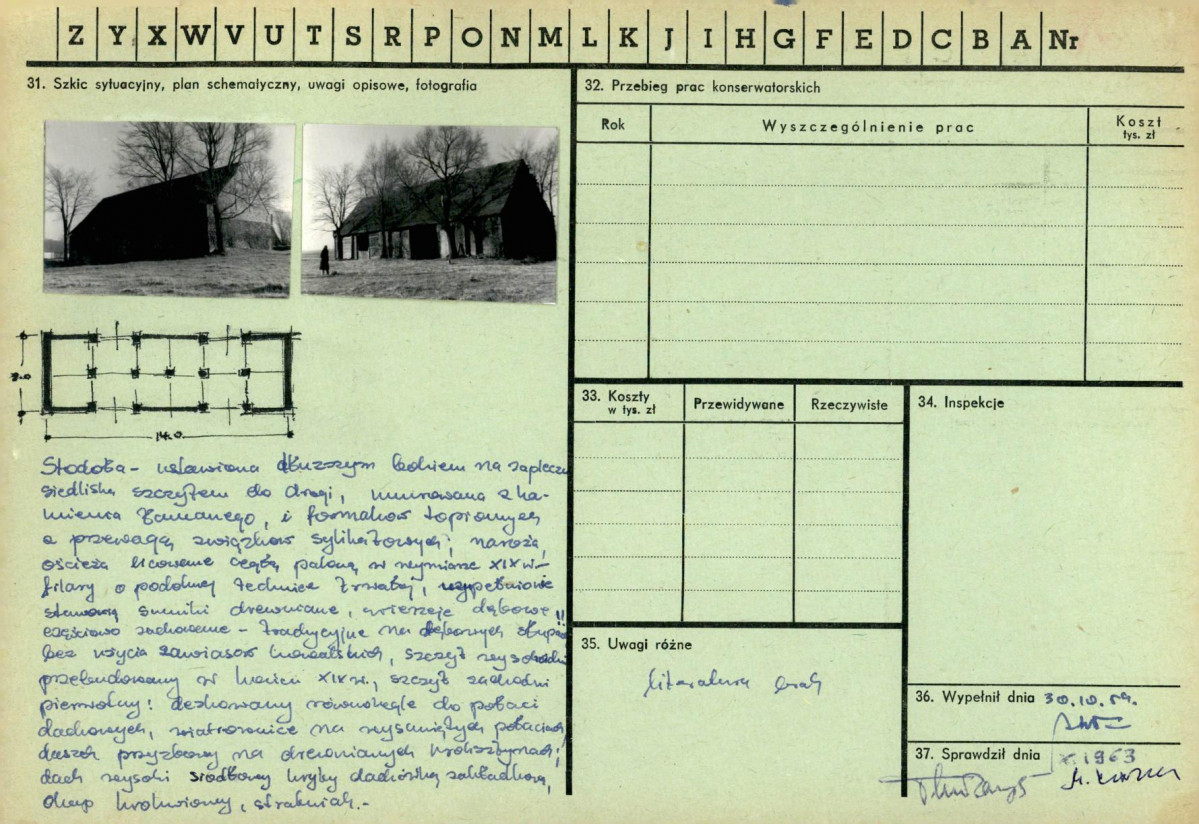 Z Y X W V U T S R P O N M L K J I H G F E D C B A Nr
31. Szkic sytuacyjny, plan schematyczny, uwagi opisowe, fotografia
14.0
Stodoła - ustawiona dłuższym bokiem na zapleczu
siedliska szczytem do drogi, murowana z ka-
mienia łamanego, i formaków topionych
o przewagą związków sylikatowych; naroża,
ościeża licowane cegłą paloną w wymiarze XIX w-
filary o podobnej technice trwałej, wypełnienie
stanowią sumiki drewniane, wierzeje dębowe!!
częściowo zachowane - tradycyjne na dębowych słupach
bez użycia zawiasów kowalskich, szczyt wschodni
przebudowany w końcu XIX w., szczyt zachodni
pierwotny! deskowany równolegle do połaci
dachowych, wiatrownice na wysuniętych połaciach,
daszek przyzbowy na drewnianych kroksztynach;
dach wysoki siodłowy kryty dachówką zakładkową,
okap krokwiowy,
32. Przebieg prac konserwatorskich
Rok
Wyszczególnienie prac
Koszt
tys. zł
33. Koszty
w tys. zł
Przewidywane
Rzeczywiste
34. Inspekcje
35. Uwagi różne
literatura brak
36. Wypełnił dnia 30.10.59.
37. Sprawdził dnia X.1963